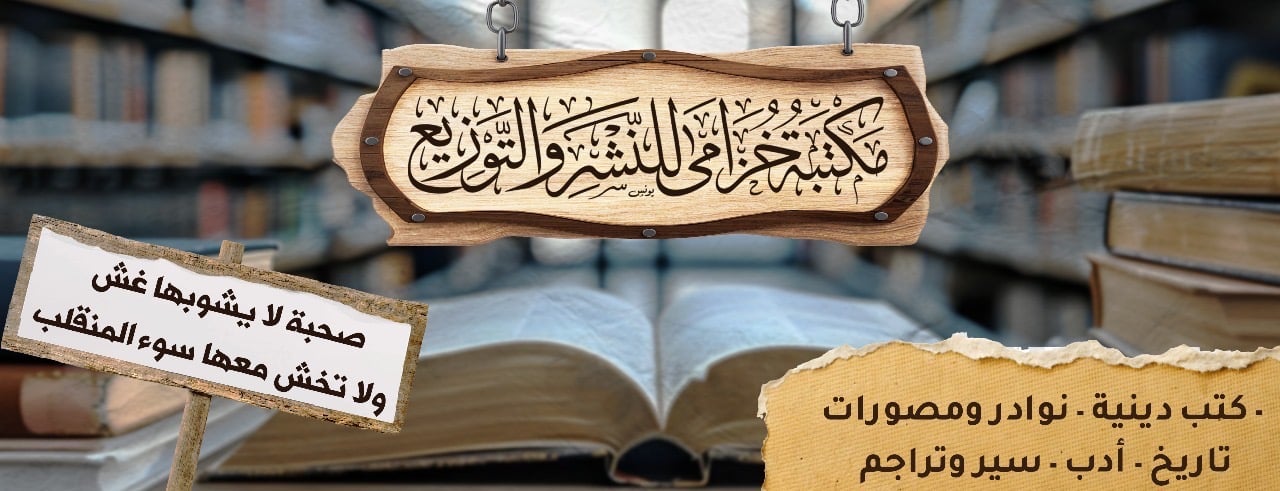 مَكْتَبَةُ خُزَامَى لِلنَّشْرِ وَالتَّوْزِيعِ
يونس
صحبة لا يشوبها غش
ولا تخش معها سوء المنقلب
- كتب دينية - نوادر ومصورات
تاريخ - أدب - سير وتراجم